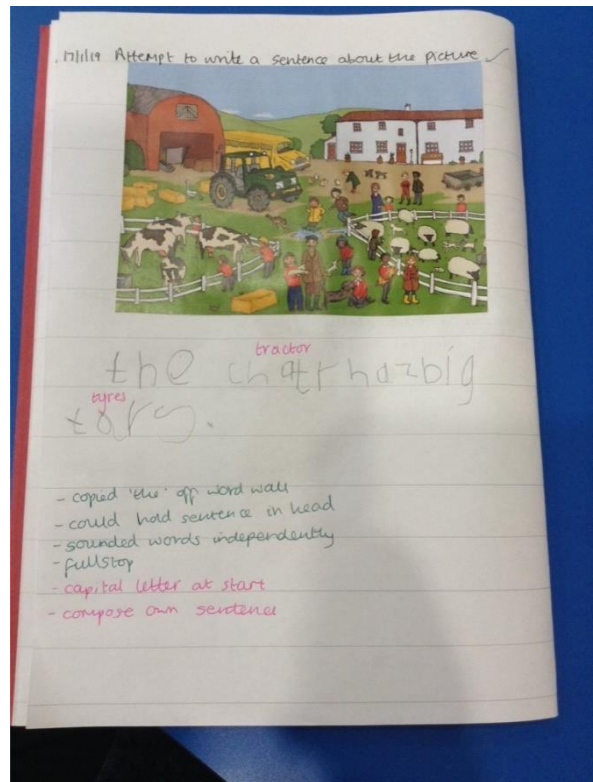 17/1/19 Attempt to write a sentence about the picture ✓
tractor
the chatr hazbig
tyres
tars.
- copied 'the' off word wall
- could hold sentence in head
- sounded words independently
- fullstop
- capital letter at start
- compose own sentence